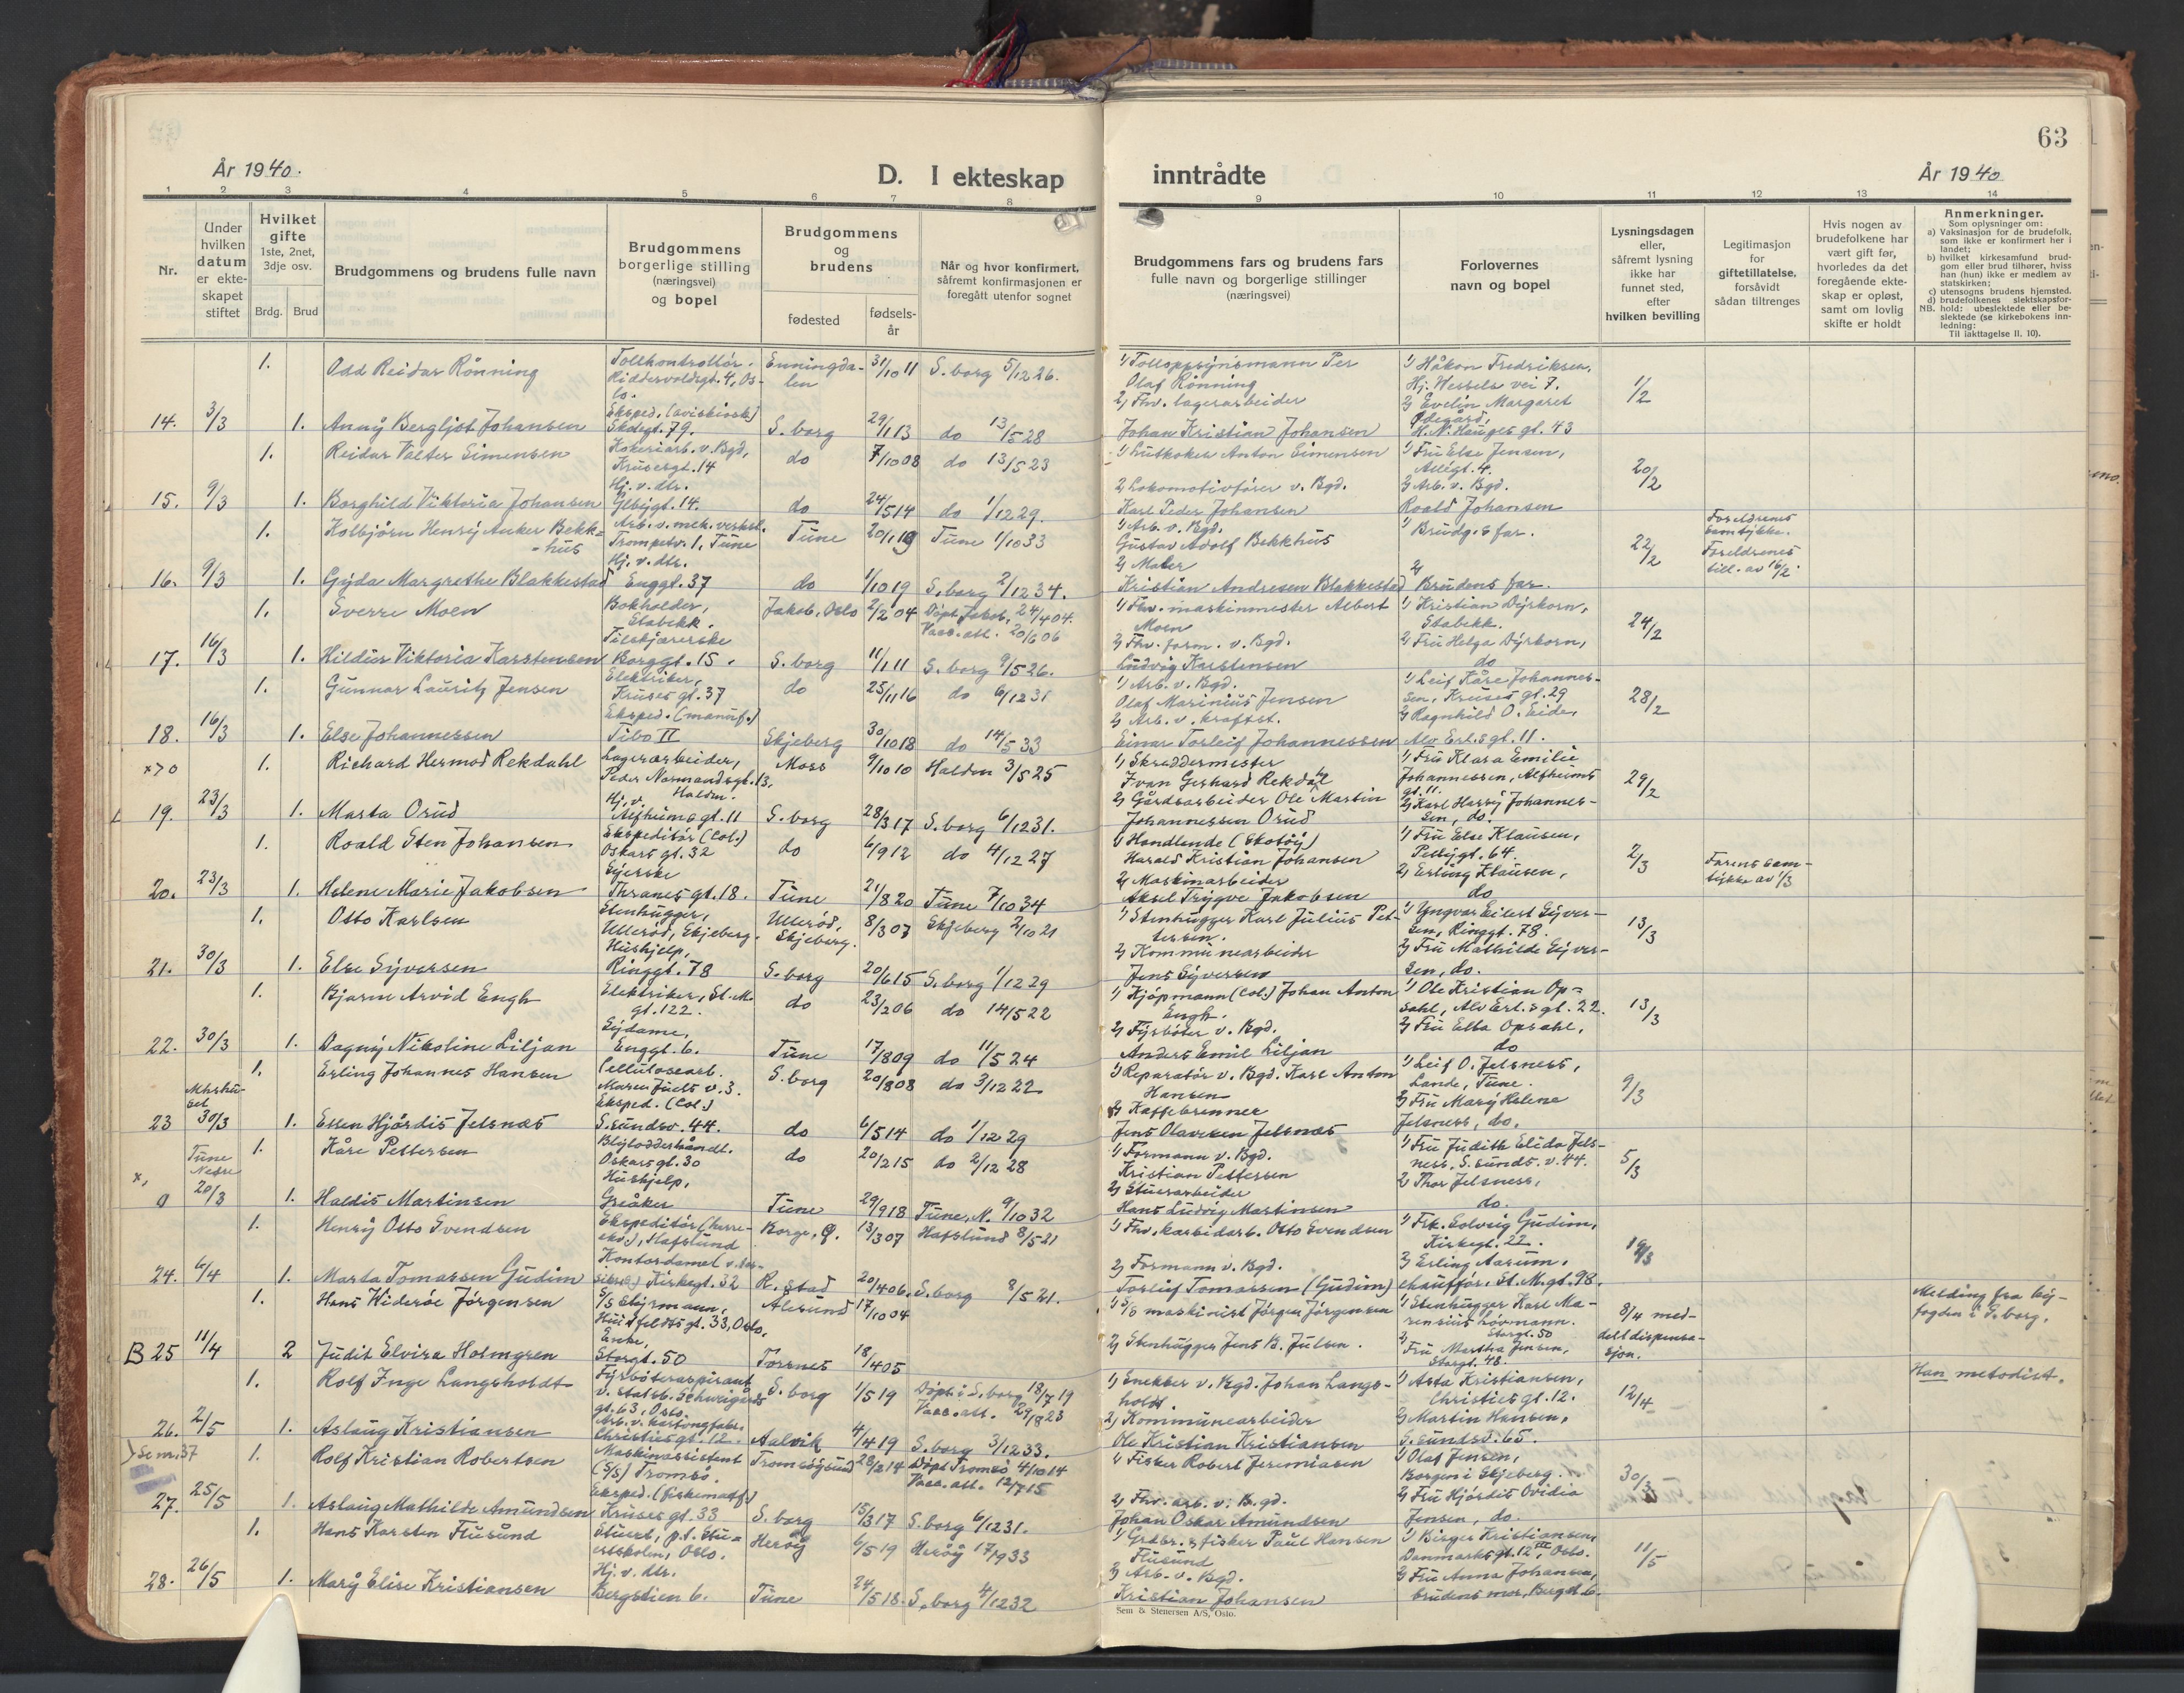 63
År 1940.
D. I ekteskap inntrådte
År 1940
1 2 3 4 5 6 7 8 9 10 11 12 13 14
Nr.
Under hvilken datum er ekteskapet stiftet
Hvilket gifte 1ste, 2net, 3dje osv.
Brdg. Brud
Brudgommens og brudens fulle navn
Brudgommens borgerlige stilling (næringsvei) og bopel
Brudgommens og brudens
fødested
fødselsår
Når og hvor konfirmert, såfremt konfirmasjonen er foregått utenfor sognet
Brudgommens fars og brudens fars fulle navn og borgerlige stillinger (næringsvei)
Forlovernes navn og bopel
Lysningsdagen eller, såfremt lysning ikke har funnet sted, efter hvilken bevilling
Legitimasjon for giftetillatelse, forsåvidt sådan tiltrenges
Hvis nogen av brudefolkene har vært gift før, hvorledes da det foregående ekteskap er opløst, samt om lovlig skifte er holdt
Anmerkninger.
Som oplysninger om:
a) Vaksinasjon for de brudefolk, som ikke er konfirmert her i landet;
b) hvilket kirkesamfund brudgom eller brud tilhører, hviss han (hun) ikke er medlem av statskirken;
c) utensogns brudens hjemsted.
d) brudefolkenes slektskapsforhold: ubeslektede eller beslektede (se kirkebokens innledning:
NB. Til iakttagelse II. 10).
1. Odd Reidar Rönning Tollkontrollör, Riddervoldsgt. 4, Oslo. Enningdalen 31/10 11 S.borg 5/12 26. 1) Tolloppsynsmann Per Olaf Rönning 1) Håkon Fredriksen, Hj. Wessels vei 7. 1/2
14. 3/3 1. Anny Bergljot Johansen Eksped. (aviskiosk) Skolegt. 79. S.borg 29/1 13 do 13/5 28 2) Fhv. lagerarbeider Johan Kristian Johansen 2) Evelin Margaret Ödegård, H.N. Hauges gt. 43
1. Reidar Valter Simensen Kokeriarb. v. Bgd, Krusesgt. 14 do 7/10 08 do 13/5 23 1) Lutkoker Anton Simensen 1) Fru Else Jensen, Allégt. 4. 20/2
15. 9/3 1. Borghild Viktoria Johansen Hj. v. dtr. Glbygt. 14. do 24/5 14 do 1/12 29. 2) Lokomotivförer v. Bgd. Karl Peder Johansen 2) Arb. v. Bgd. Roald Johansen
1. Kolbjörn Henry Anker Bekkhus Arb. v. mek. verkst. Trompetv. 1, Tune Tune 20/1 19 Tune 1/10 33 1) Arb. v. Bgd. Gustav Adolf Bekkhus 1) Brudg.s far. 22/2 Foreldrenes samtykke.
16. 9/3 1. Gyda Margrethe Blakkestad Hj. v. dtr. Enggt. 37 do 1/10 19 S.borg 2/12 34. 2) Maler Kristian Andresen Blakkestad 2) Brudens far. Foreldrenes till. av 16/2.
1. Sverre Moen Bokholder, Stabekk. Jakob, Oslo 2/2 04 Döpt Jakob, 24/4 04. Vacc.att. 20/6 06 1) Fhv. maskinmester Albert Moen 1) Kristian Dyrkorn, Stabekk. 24/2
17. 16/3 1. Hildur Viktoria Karstensen Tilskjærerske Borggt. 15. S.borg 11/1 11 S.borg 9/5 26. 2) Fhv. form. v. Bgd. Ludvig Karstensen 2) Fru Helga Dyrkorn, do
1. Gunnar Lauritz Jensen Elektriker, Kruses gt. 37 do 25/11 16 do 6/12 31 1) Arb. v. Bgd. Olaf Marinius Jensen 1) Leif Kåre Johannessen, Kruses gt. 29 28/2
18. 16/3 1. Else Johannessen Eksped. (manuf.) Tibo II Skjeberg 30/10 18 do 14/5 33 2) Arb. v. kraftst. Einar Torleif Johannessen 2) Ragnhild O. Eide, Alv Erl.s gt. 11.
1. Richard Hermod Rekdahl Lagerarbeider, Peder Normandsgt. 13, Halden. Moss 9/10 10 Halden 3/5 25 1) Skreddermester Ivan Gerhard Rekdal 1) Fru Klara Emilie Johannessen, Alfheims gt. 11. 29/2
19. 23/3 1. Marta Orud Hj. v. Alfheims gt. 11 S.borg 28/3 17 S.borg 6/12 31. 2) Gårdsarbeider Ole Martin Johannessen Orud 2) Karl Harry Johannessen, do.
1. Roald Sten Johansen Ekspeditör (Col.) Oskars gt. 32 do 6/9 12 do 4/12 27 1) Handlende (Skotöy) Harald Kristian Johansen 1) Fru Else Klausen, Pellygt. 64. 2/3 Farens samtykke av 1/3
20. 23/3 1. Helene Marie Jakobsen Syerske Thranes gt. 18. Tune 21/8 20 Tune 7/10 34 2) Maskinarbeider Aksel Trygve Jakobsen 2) Erling Klausen, do
1. Otto Karlsen Stenhugger, Ulleröd, Skjeberg. Ulleröd, Skjeberg. 8/3 07 Skjeberg 2/10 21 1) Stenhugger Karl Julius Pettersen. 1) Yngvar Eilert Syversen, Ringgt. 78. 13/3
21. 30/3 1. Else Syversen Hushjelp, Ringgt. 78 S.borg 20/6 15 S.borg 1/12 29 2) Kommunearbeider Jens Syversen 2) Fru Mathilde Syversen, do.
1. Bjarne Arvid Engh Elektriker, St. M. gt. 122. do 23/2 06 do 14/5 22 1) Kjöpmann (Col.) Johan Anton Engh. 1) Ole Kristian Opsahl, Alv Erl.s gt. 22. 13/3
22. 30/3 1. Dagny Nikoline Liljan Sydame, Enggt. 6. Tune 17/8 09 do 11/5 24 2) Fyrböter v. Bgd. Anders Emil Liljan 2) Fru Elba Opsahl, do
1. Erling Johannes Hansen Cellulosearb. Maren Juels v. 3. S.borg 20/8 08 do 3/12 22 1) Reparatör v. Bgd. Karl Anton Hansen 1) Leif O. Jelsness, Lande, Tune. 9/3
23 30/3 1. Essen Hjördis Jelsnæs Eksped. (Col.) S.sundsv. 44. do 6/5 14 do 1/12 29 2) Kaffebrenner Jens Olavesen Jelsnæs 2) Fru Mary Helene Jelsness, do.
Tune Nedre 1. Kåre Pettersen Blylodderhåndl. Oskarsgt. 30 do 20/2 15 do 2/12 28 1) Formann v. Bgd. Kristian Pettersen 1) Fru Judith Elida Jelsness, S.sunds.v. 44. 5/3
0 20/3 1. Haldis Martinsen Hushjelp, Greåker Tune 29/9 18 Tune, N. 9/10 32 2) Stuerarbeider Hans Ludvig Martinsen 2) Thor Jelsness, do.
1. Henry Otto Svendsen Ekspeditör (herreekv.), Hafslund Borge, Ø. 13/3 07 Hafslund 8/5 21 1) Fhv. karbidarb. Otto Svendsen 1) Frk. Solveig Gudim, Kirkegt. 22. 19/3
24. 6/4 1. Marta Tomassen Gudim Kontordame Kirkegt. 32 R.stad 20/4 06. S.borg 8/5 21. 2) Formann v. Bgd. Torleif Tomassen (Gudim) 2) Erling Aarum, chaufför, St. M.gt. 98.
1. Hans Wideröe Jörgensen S/S Styrmann, Huitfeldts gt. 33, Oslo. Ålesund 17/10 04 1) S/S maskinist Jörgen Jörgensen 1) Stenhugger Karl Marensius Lövmann. Storgt. 50 8/4 meddelt dispensasjon. Melding fra byfogden i S.borg.
B 25 11/4 2 Judit Elvira Holmgren Enke, Storgt. 50 Torsnes 18/4 05 2) Stenhugger Jens B. Julsen. 2) Fru Martha Jensen, Storgt. 48.
1. Rolf Inge Langsholdt Fyrböteraspirant v. statsb. Schweigårds gt. 63, Oslo. S.borg 1/5 19 Döpt i S.borg 18/7 19 Vacc.att. 29/8 23 1) Snekker v. Bgd. Johan Langsholdt. 1) Asta Kristiansen, Christies gt. 12. 12/4 Han metodist.
26. 2/5 1. Aslaug Kristiansen Arb. v. kartongfabr. Christies gt. 12. Aalvik 4/4 19 S.borg 3/12 33. 2) Kommunearbeider Ole Kristian Kristiansen 2) Martin Hansen, S.sundsv. 65.
Se nr. 37 1. Rolf Kristian Robertsen Maskinassistent (S/S) Tromsö. Tromsöysund 28/2 14 Döpt Tromsö 4/10 14 Vacc.att. 12/7 15 1) Fisker Robert Jeremiasen 1) Olaf Jensen, Borgen i Skjeberg. 30/3
27. 25/5 1. Aslaug Mathilde Amundsen Eksped. (fiskematf.) Kruses gt. 33 S.borg 15/3 17 S.borg 6/12 31. 2) Fhv. arb. v. Bgd. Johan Oskar Amundsen 2) Fru Hjördis Ovidia Jensen, do.
1. Hans Karsten Flusund Stuert, p.t. Stuertskolen, Oslo. Heröy 6/5 19 Heröy 17/9 33 1) Grdbr. & fisker Paul Hansen Flusund 1) Birger Kristiansen, Danmarks gt. 12 III, Oslo. 11/5
28. 26/5 1. Mary Elise Kristiansen Hj. v. dtr. Bergstien 6. Tune 24/5 18. S.borg 4/12 32 2) Arb. v. Bgd. Kristian Johansen 2) Fru Anna Johansen, brudens mor, Bergst. 6.
Sem & Stenersen A/S, Oslo.